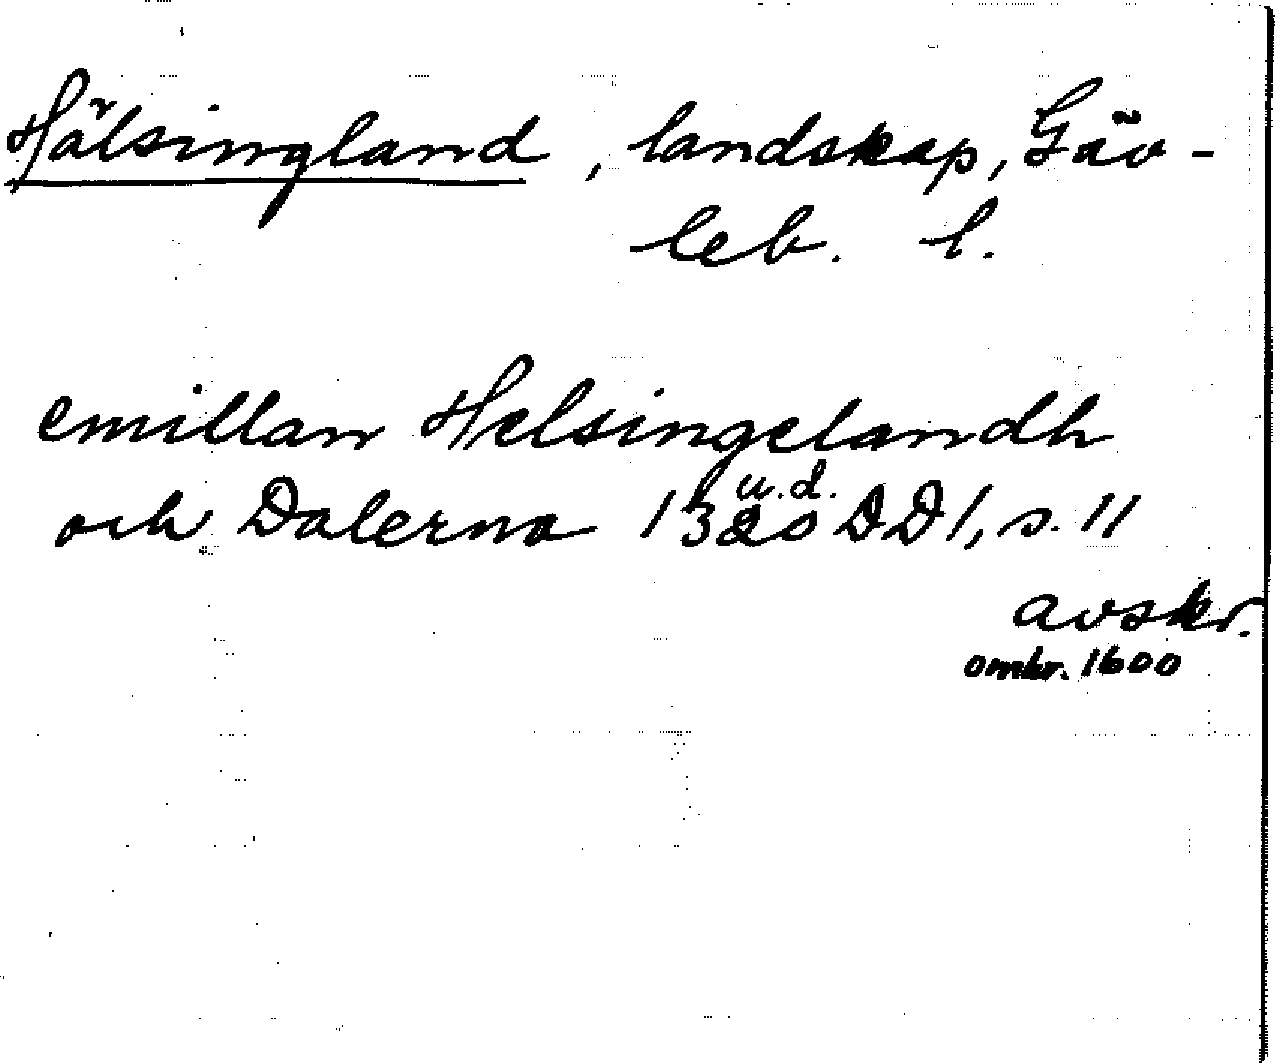 Hälsingland, landskap, Gäv-
leb. l.
emillan Helsingelandh
u.d.
och Dalerna 1320 DD1, s. 11
avskr.
omkr. 1600